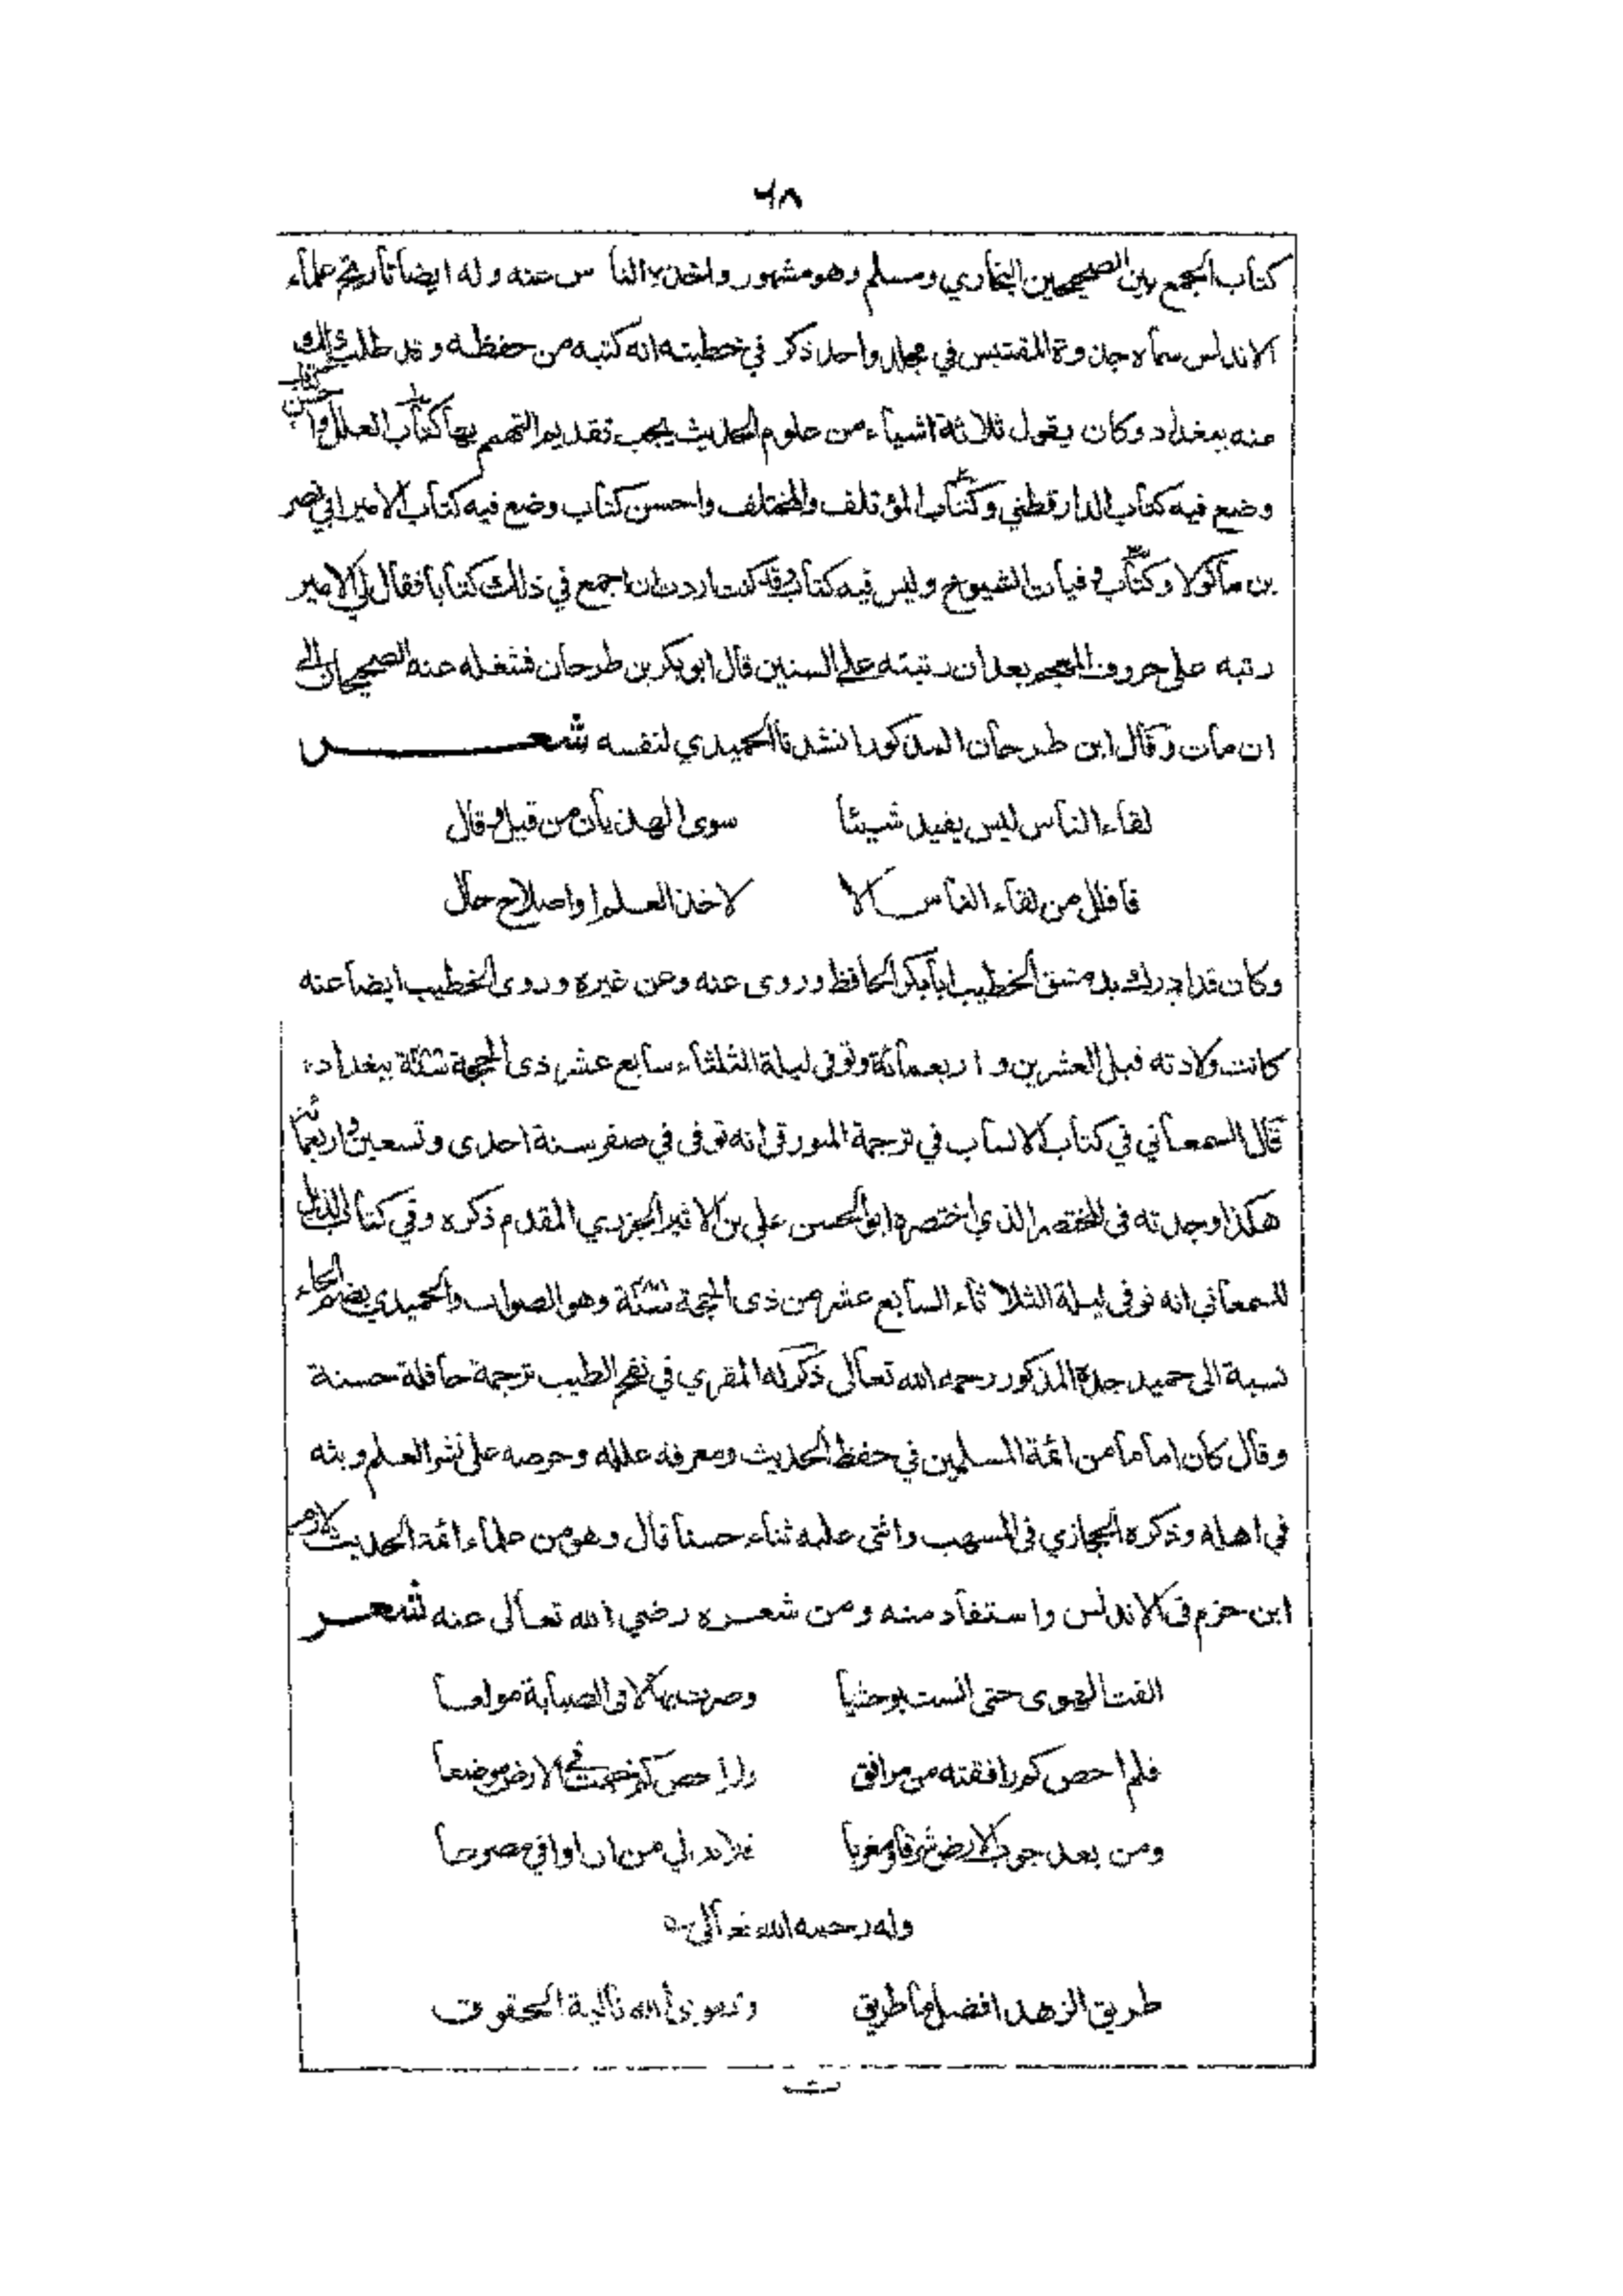 ٦٨
كتاب الجمع بين الصحيحين البخاري ومسلم وهو مشهور واخذه الناس عنه وله ايضا تاريخ علماء
الاندلس سماه جذوة المقتبس في مجلد واحد ذكر في خطبته انه كتبه من حفظه وقد طلب ذلك
منه ببغداد وكان يقول ثلاثة اشياء من علوم الحديث يجب تقديم التهمم بها كتاب العلل واحسن كتاب
وضع فيه كتاب الدارقطني وكتاب المؤتلف والمختلف واحسن كتاب وضع فيه كتاب الامير ابي نصر
بن ماكولا وكتاب وفيات الشيوخ وليس فيه كتاب وقد كنت اردت ان اجمع في ذلك كتابا فقال لي الامير
رتبه على حروف المعجم بعد ان رتبته على السنين قال ابو بكر بن طرحان فشغله عنه الصحيحان الى
ان مات وقال ابن طرحان المذكور انشدنا الحميدي لنفسه شعر
لقاء الناس ليس يفيد شيئا سوى الهذيان من قيل وقال
فاقلل من لقاء الناس الا لاخذ العلم او اصلاح حال
وكان قد ادرك بدمشق الخطيب ابابكر الحافظ وروى عنه وعن غيره وروى الخطيب ايضا عنه
كانت ولادته قبل العشرين و اربعمائة وتوفى ليلة الثلثاء سابع عشر ذى الحجة ببغداد
قال السمعاني في كتاب الانساب في ترجمة الميورقى انه توفى في صفر سنة احدى وتسعين واربعمائة
هكذا وجدته فى المختصر الذي اختصره ابو الحسن علي بن الاثير الجزري المقدم ذكره وفي كتاب الذيل
للسمعاني انه توفى ليلة الثلاثاء السابع عشر من ذى الحجة وهو الصواب والحميدي بضم الحاء
نسبة الى حميد جده المذكور رحمه الله تعالى ذكر له المقري في نفح الطيب ترجمة حافلة حسنة
وقال كان اماما من ائمة المسلمين في حفظ الحديث ومعرفة علله وحرصه على نشر العلم وبثه
في اهله وذكره الحجازي فى المسهب واثنى عليه ثناء حسنا قال وهو من علماء ائمة الحديث لازم
ابن حزم فى الاندلس واستفاد منه ومن شعره رضي الله تعالى عنه شعر
الفت الهوى حتى انست بوحشها وصرت بها لا فى الصبابة مولعا
فلم احص كم رافقته من مرافق ولم احص كم خيمت في الارض موضعا
ومن بعد جوب الارض شرقا ومغربا فلا بد لي من ان اوافي مصرعا
وله رحمه الله تعالى
طريق الزهد افضل ما طريق وتقوى الله تالية الحقوق